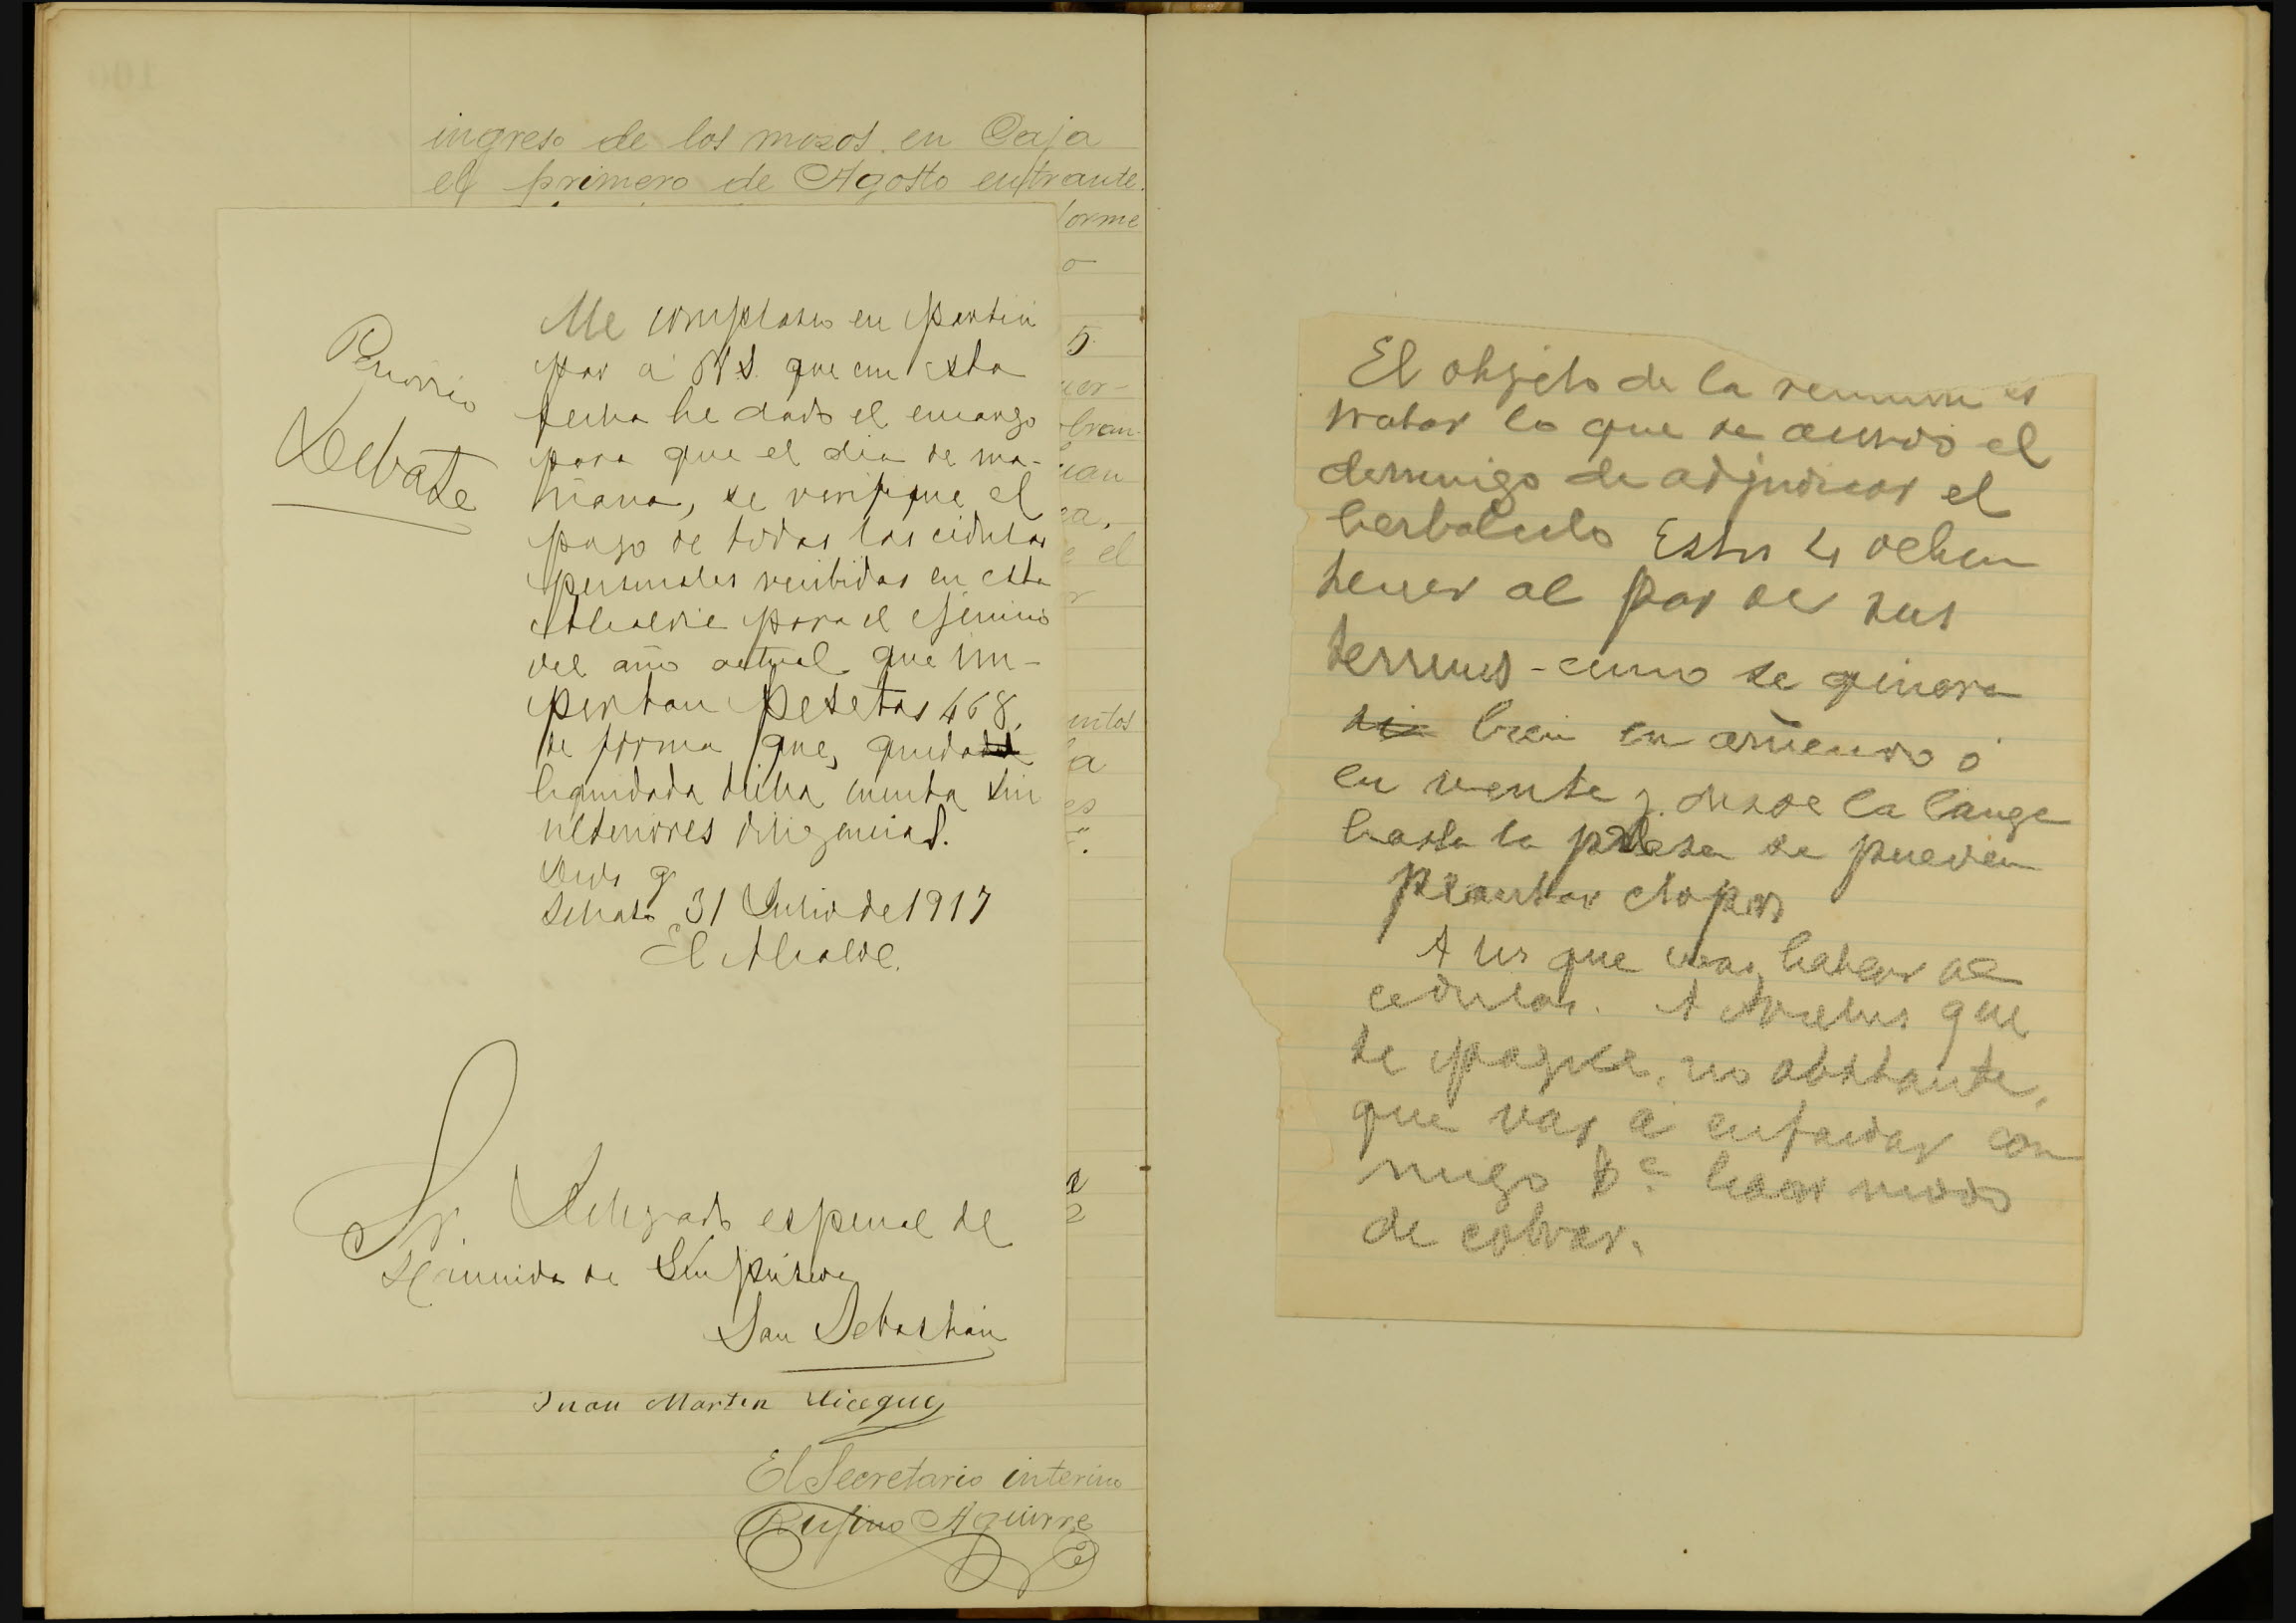 ingreso de los mozos en Caja
el primero de Agosto entrante.
orme
o
5
uer-
obran-
uan
ca,
e el
r
untos
a
es
a
Me complazco en partici
par a V.S. que en esta
fecha he dado el encargo
para que el dia de ma-
ñana, se verifique el
pago de todas las cédulas
personales recibidas en esta
Alcaldia para el ejercicio
del año actual que im-
portan pesetas 468,
de forma que, queda
liquidada dicha cuenta sin
ulteriores diligencias.
Dios g
31 Julio de 1917
El Alcalde.
Sr. Delegado especial de
Hacienda de Guipúzcoa
San Sebastián
Juan Martin
El Secretario interino
Rufino Aguirre
El objeto de la reunion es
tratar lo que se acordó el
domingo de adjudicar el
Estos 4 deben
tener al par de sus
terrenos - como se quiera
bien en arriendo ó
en venta y desde la
hasta la presa se pueden
plantar chopos
A los que vas hablar de
cedulas. A que
se pague, no obstante,
que vas á enfadar con
migo hacer modo
de cobrar.